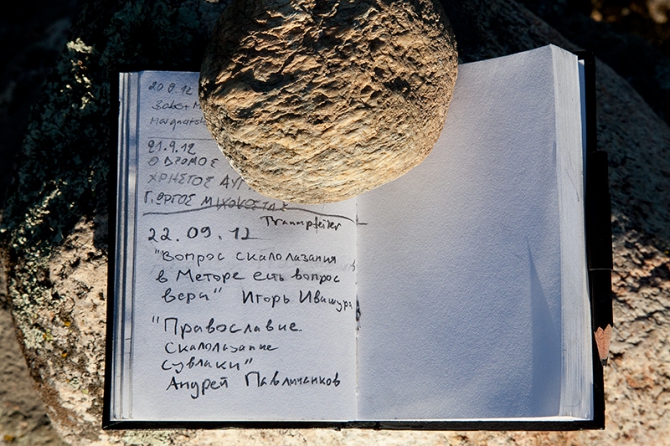 20.9.12
21.9.12
Ο ΔΡΟΜΟΣ
ΧΡΗΣΤΟΣ ΑΥΓ
ΓΙΩΡΓΟΣ
Traumpfeiler
22.09.12
"Вопрос скалолазания
в Меторе есть вопрос
веры" Игорь Ивашура
"Православие.
Скалолазание
сувлаки"
Андрей Павличенков